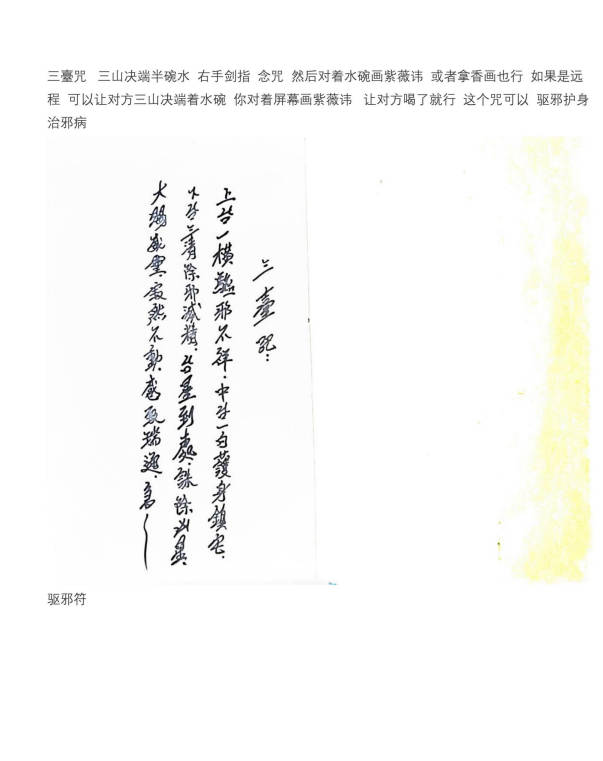 三臺咒 三山决端半碗水 右手剑指 念咒 然后对着水碗画紫薇讳 或者拿香画也行 如果是远
程 可以让对方三山决端着水碗 你对着屏幕画紫薇讳 让对方喝了就行 这个咒可以 驱邪护身
治邪病
三臺咒：
上台一横驅邪不祥．中台一白護身鎮宅．
下台三清除邪滅精．台星到處．誅除凶星．
大賜威靈．寂然不動．感瑞通．
驱邪符